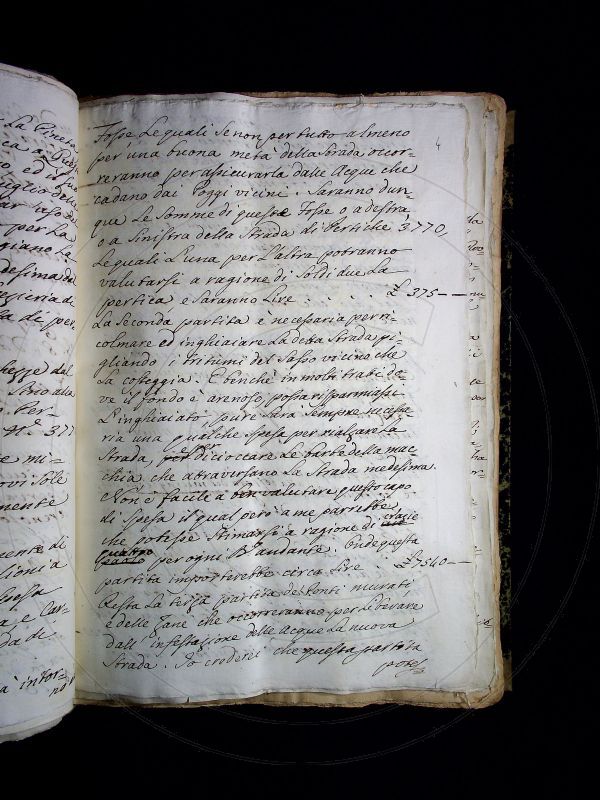 4
Fosse le quali se non per tutto almeno
per una buona metà della Strada occor-
reranno per assicurarla dalle Acque che
cadano dai Poggi vicini. Saranno dun-
que le somme di queste Fosse o a destra
o a Sinistra della Strada di Pertiche 3770,
le quali l'una per l'altra potranno
valutarsi a ragione di Soldi due la
pertica e saranno Lire . . . . . £ 375 — —
La Seconda partita è necessaria per ri-
colmare ed inghiaiare la detta Strada pi-
gliando i tritumi del Sasso vicino che
la costeggia. E benchè in molti tratti do-
ve il fondo è arenoso, possa risparmiarsi
l'inghiaiato, pure sarà sempre necessa-
ria una qualche spesa per rialzare la
Strada, per dicioccare le barbe della mac-
chia che attraversano la Strada medesima.
Non è facile a ben valutare questo capo
di spesa il qual però a me parrebbe
che potesse stimarsi a ragione di crazie
quattro per ogni B. andante. Onde questa
partita importerebbe circa Lire £ 7540 —
Resta la terza partita de Ponti murati
e delle Zane che occorreranno per liberare
dall' infestazione delle Acque la nuova
Strada. Io crederei che questa partita
potes
la Pineta
per la
giano la
desima del
di per
Strio alla
N.° 377
ovi sole
mente
mente di
spesa
a e Car-
da di
à intor-
no